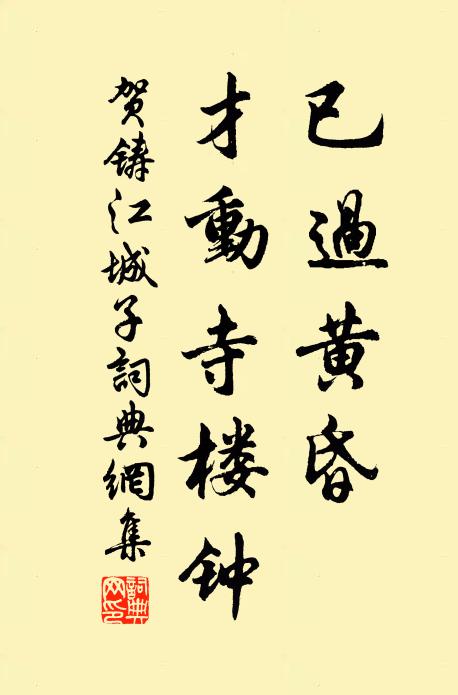 已過黄昏
才動寺楼钟
贺铸江城子詞典網集
詞典网印